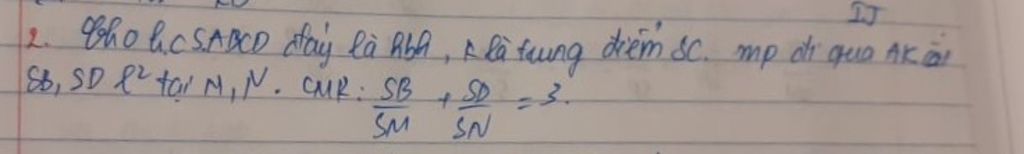 IJ
2. Cho h.c S.ABCD đáy là hbh, K là trung điểm SC. mp đi qua AK cắt
SB, SD l² tại M, N. CMR: SB/SM + SD/SN = 3.